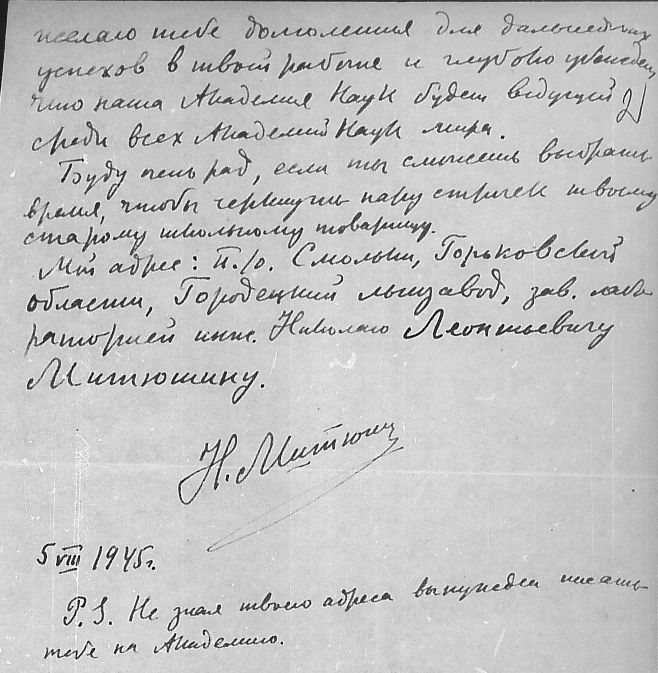 желаю тебе долголетия для дальнейших
успехов в твоей работе и глубоко убежден,
что наша Академия Наук будет ведущей
среди всех Академий Наук мира.
Буду очень рад, если ты сможешь выбрать
время, чтобы черкнуть пару строчек твоему
старому школьному товарищу.
Мой адрес: п./о. Смольки, Горьковской
области, Городецкий льнзавод, зав. лабо-
раторией инж. Николаю Леонтьевичу
Митюшину.
Н. Митюшин
5 VIII 1945г.
P.S. Не зная твоего адреса вынужден писать
тебе на Академию.